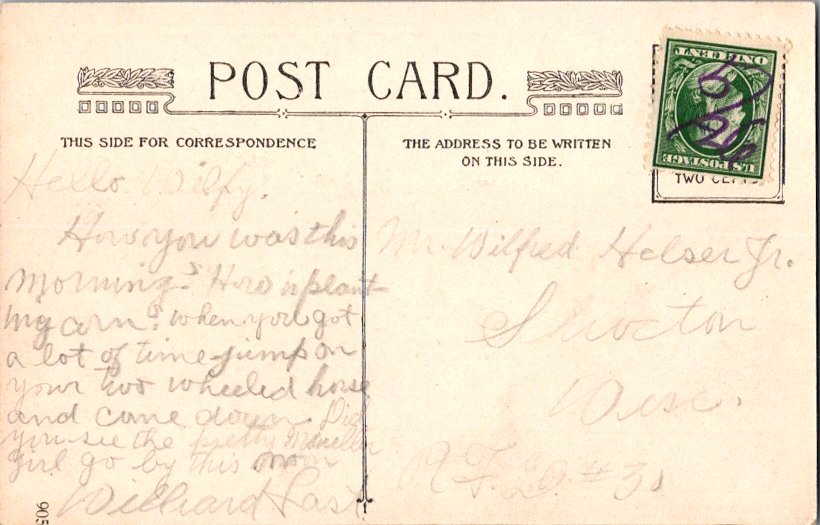 POST CARD.
THIS SIDE FOR CORRESPONDENCE
THE ADDRESS TO BE WRITTEN
ON THIS SIDE.
U.S. POSTAGE
ONE CENT
5/26
TWO CENTS
Hello Wilfy.
How you was this
morning? How is plant-
ing corn? When you got
a lot of time jump on
your two wheeled horse
and come down. Did
you see the pretty
girl go by this noon
Williard Last
Mr. Wilfred Helser Jr.
Shiocton
Wisc.
R.F.D. # 3.
905